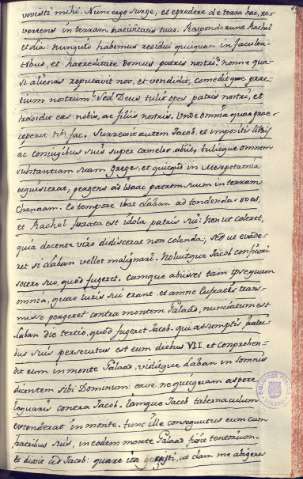 vovisti mihi. Nunc ergo surge, et egredere de terra hac, re-
vertens in terram nativitatis tuae. Responderunt Rachel
et Lia: nunquid habemus residui quicquam in faculta-
tibus, et haereditate domus patris nostri? nonne qua-
si alienas reputavit nos, et vendidit, comeditque pre-
tium nostrum? Sed Deus tulit opes patris nostri, et
tradidit eas nobis, ac filiis nostris. Unde omnia quae prae-
cepit tibi fac. Surrexit autem Jacob, et impositis liberis
ac conjugibus suis super camelos abiit, tulitque omnem
substantiam suam, greges, et quicquid in Mesopotamia
acquisierat, pergens ad Isaac patrem suum in terram
Chanaam. Eo tempore ibat Laban ad tondendas oves,
et Rachel furata est idola patris sui: Non ut coleret,
quia docente viro didicerat non colenda; sed ut
et si Laban vellet malignari. Noluitque Jacob confiteri
socero suo, quod fugeret. Cumque abiisset tam ipse quam
omnia, quae juris sui erant et amne transmisso
pergeret contra montem Galaad, nunciatum est
Laban die tertio, quod fugeret Jacob. qui assumptis fratri-
bus suis persecutus est eum diebus VII. et comprehen-
dit eum in monte Galaad, viditque Laban in somnis
dicentem sibi Dominum: cave ne quicquam aspere
loquaris contra Jacob. Jamque Jacob tabernaculum
extenderat in monte. tunc ille consequutus eum cum
fratribus suis, in eodem monte Galaad fixit tentorium.
Et dixit ad Jacob: quare ita egisti, ut clam me abigeres